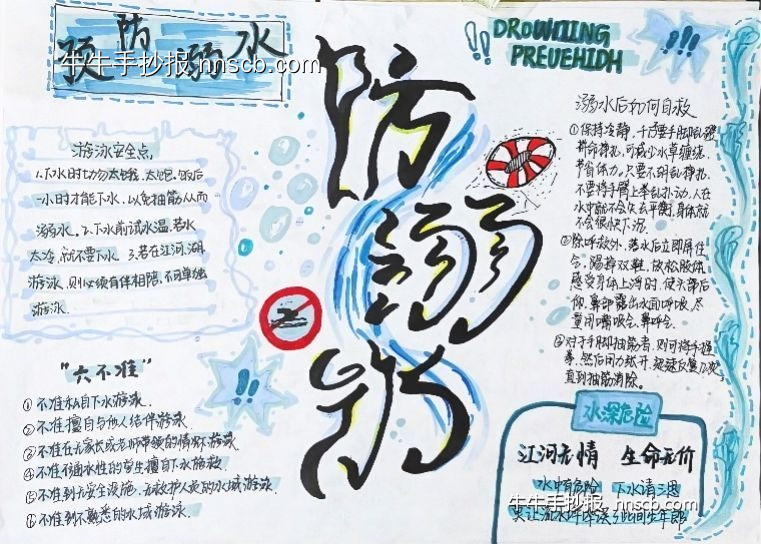 预防溺水
牛牛手抄报 hnscb.com
DROWIIING
PREUEHIDH
防溺水
游泳安全点
1.下水时切勿太饿、太饱。饭后
一小时才能下水，以免抽筋从而
溺水。2.下水前试水温，若水
太冷，就不要下水。3.若在江河、湖
游泳，则必须有伴相陪，不可单独
游泳。
"六不准"
①不准私自下水游泳.
②不准擅自与他人结伴游泳
③不准在无家长或老师带领的情况下游泳
④不准不通水性的学生擅自下水施救.
⑤不准到无安全设施、无救护人员的水域游泳.
⑥不准到不熟悉的水域游泳.
溺水后如何自救
①保持冷静，千万要手脚乱蹬
拼命挣扎，可减少水草缠绕，
节省体力。只要不胡乱挣扎，
不要将手臂上举乱扑动，人在
水中就不会失去平衡，身体就
不会很快下沉.
②除呼救外，落水后立即屏住
踢掉双鞋，放松肢体
感受身体上浮时，
仰，鼻部露出水面呼吸，尽
量用嘴吸气、鼻呼气.
③对于手脚抽筋者，则可将手握
拳，然后用力张开，迅速反复几次，
直到抽筋消除。
水深危险
江河无情 生命无价
水中有危险 下水请三思
牛牛手抄报 hnscb.com
莫让流水呼啸